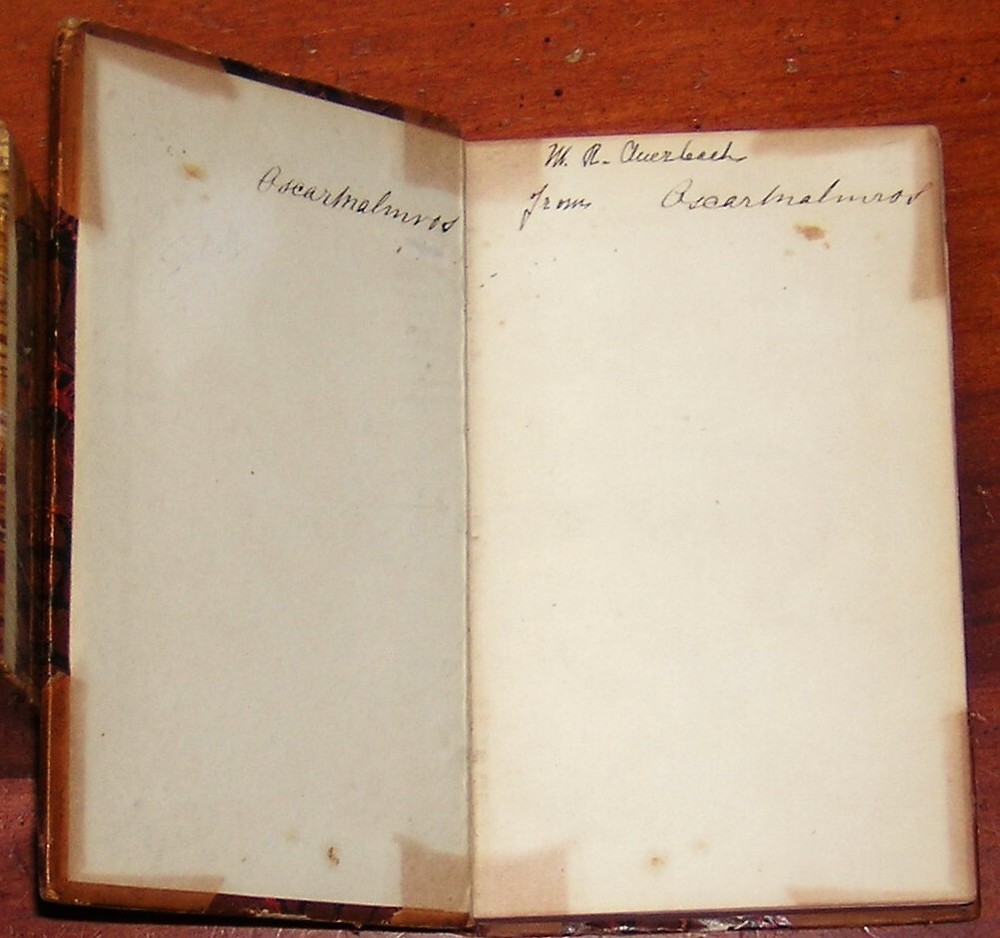 Oscar Malmros
M. R. Auerbach
from Oscar Malmros